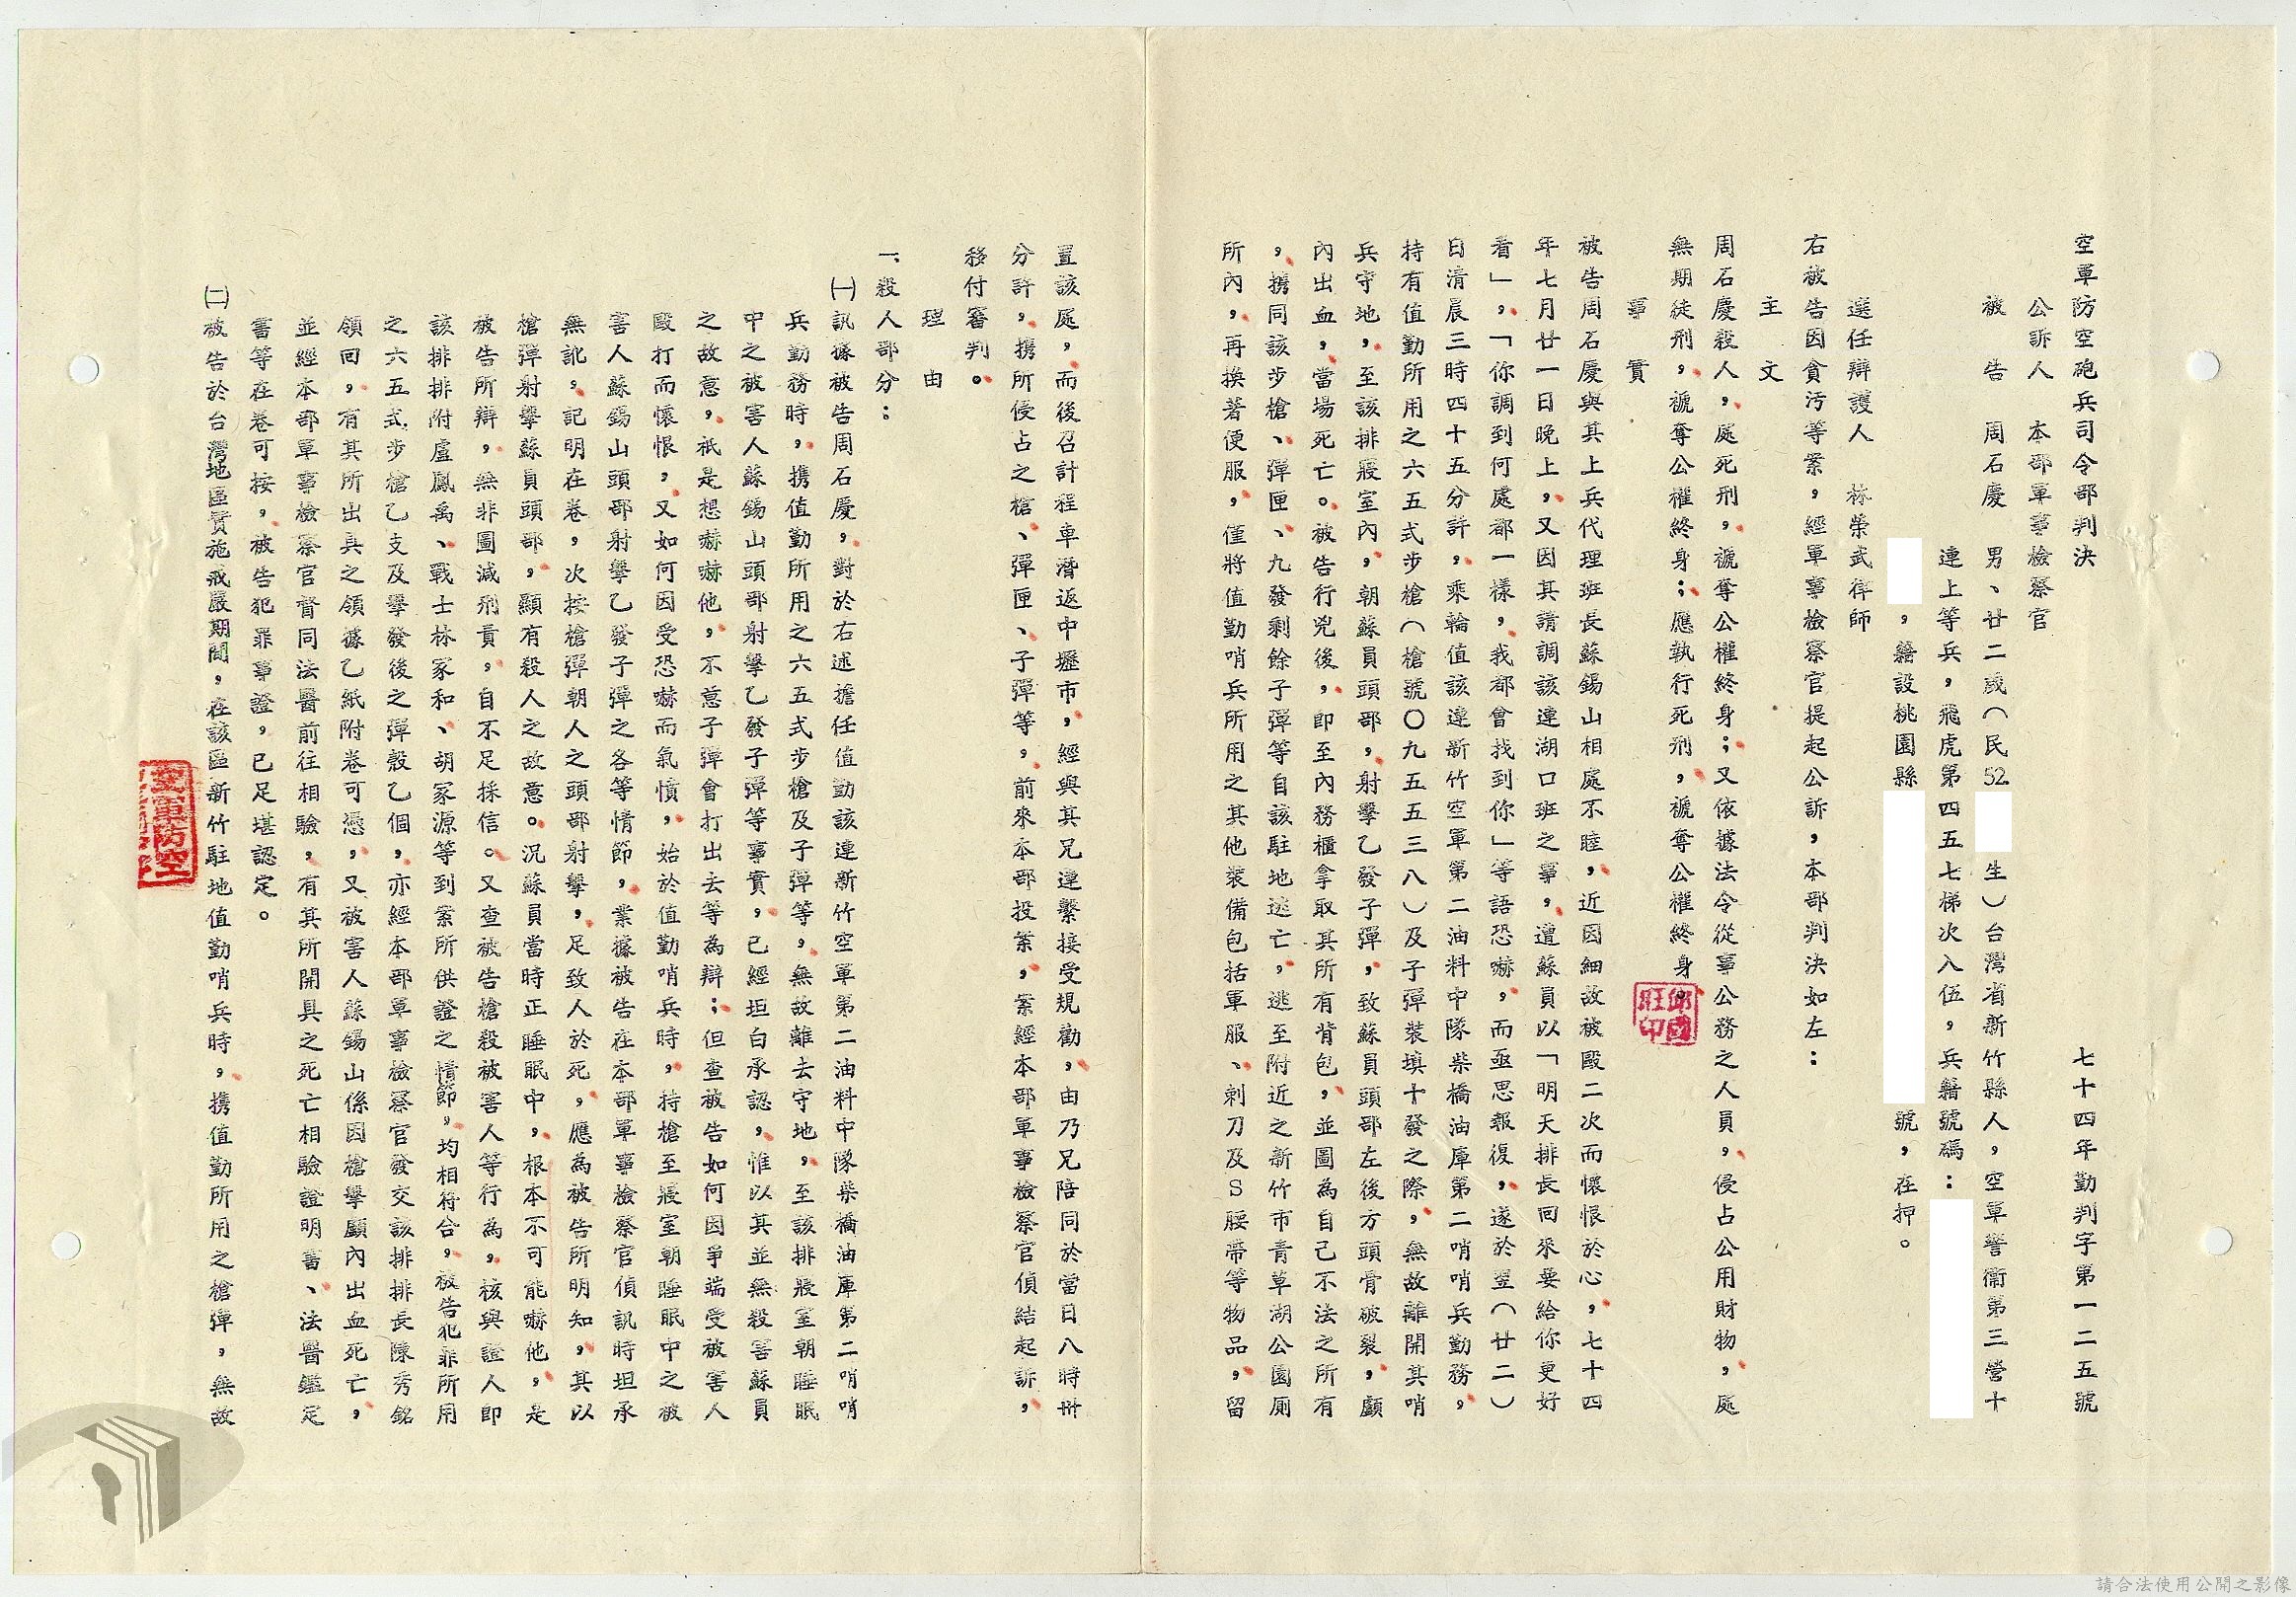 空軍防空砲兵司令部判決　七十四年勤判字第一二五號
公訴人　本部軍事檢察官
被告　周石慶　男、廿二歲（民52　生）台灣省新竹縣人，空軍警衞第三營十
連上等兵，飛虎第四五七梯次入伍，兵籍號碼：
，籍設桃園縣　號，在押。
選任辯護人　林榮武律師
右被告因貪污等案，經軍事檢察官提起公訴，本部判決如左：
主文
周石慶殺人，處死刑，褫奪公權終身；又依據法令從事公務之人員，侵占公用財物，處
無期徒刑，褫奪公權終身；應執行死刑，褫奪公權終身。
事實
被告周石慶與其上兵代理班長蘇錫山相處不睦，近因細故被毆二次而懷恨於心，七十四
年七月廿一日晚上，又因其請調該連湖口班之事，遭蘇員以「明天排長回來要給你更好
看」，「你調到何處都一樣，我都會找到你」等語恐嚇，而亟思報復，遂於翌（廿二）
日清晨三時四十五分許，乘輪值該連新竹空軍第二油料中隊柴橋油庫第二哨哨兵勤務，
持有值勤所用之六五式步槍（槍號〇九五五三八）及子彈裝填十發之際，無故離開其哨
兵守地，至該排寢室內，朝蘇員頭部，射擊乙發子彈，致蘇員頭部左後方頭骨破裂，顱
內出血，當場死亡。被告行兇後，即至內務櫃拿取其所有背包，並圖為自己不法之所有
，携同該步槍、彈匣、九發剩餘子彈等自該駐地逃亡，逃至附近之新竹市青草湖公園厠
所內，再換著便服，僅將值勤哨兵所用之其他裝備包括軍服、刺刀及S腰帶等物品，留
置該處，而後召計程車潛返中壢市，經與其兄連繫接受規勸，由乃兄陪同於當日八時卅
分許，携所侵占之槍、彈匣、子彈等，前來本部投案，案經本部軍事檢察官偵結起訴，
移付審判。
理由
一、殺人部分：
㈠訊據被告周石慶，對於右述擔任值勤該連新竹空軍第二油料中隊柴橋油庫第二哨哨
兵勤務時，携值勤所用之六五式步槍及子彈等，無故離去守地，至該排寢室朝睡眠
中之被害人蘇錫山頭部射擊乙發子彈等事實，已經坦白承認，惟以其並無殺害蘇員
之故意，祇是想嚇嚇他，不意子彈會打出去等為辯；但查被告如何因爭端受被害人
毆打而懷恨，又如何因受恐嚇而氣憤，始於值勤哨兵時，持槍至寢室朝睡眠中之被
害人蘇錫山頭部射擊乙發子彈之各等情節，業據被告在本部軍事檢察官偵訊時坦承
無訛，記明在卷，次按槍彈朝人之頭部射擊，足致人於死，應為被告所明知，其以
槍彈射擊蘇員頭部，顯有殺人之故意。況蘇員當時正睡眠中，根本不可能嚇他，是
被告所辯，無非圖減刑責，自不足採信。又查被告槍殺被害人等行為，核與證人即
該排排附盧鳳禹、戰士林家和、胡家源等到案所供證之情節，均相符合，被告犯罪所用
之六五式步槍乙支及擊發後之彈殼乙個，亦經本部軍事檢察官發交該排排長陳秀銘
領回，有其所出具之領據乙紙附卷可憑，又被害人蘇錫山係因槍擊顱內出血死亡，
並經本部軍事檢察官督同法醫前往相驗，有其所開具之死亡相驗證明書、法醫鑑定
書等在卷可按，被告犯罪事證，已足堪認定。
㈡被告於台灣地區實施戒嚴期間，在該區新竹駐地值勤哨兵時，携值勤所用之槍彈，無故
邱國旺印
空軍防空
請合法使用公開之影像